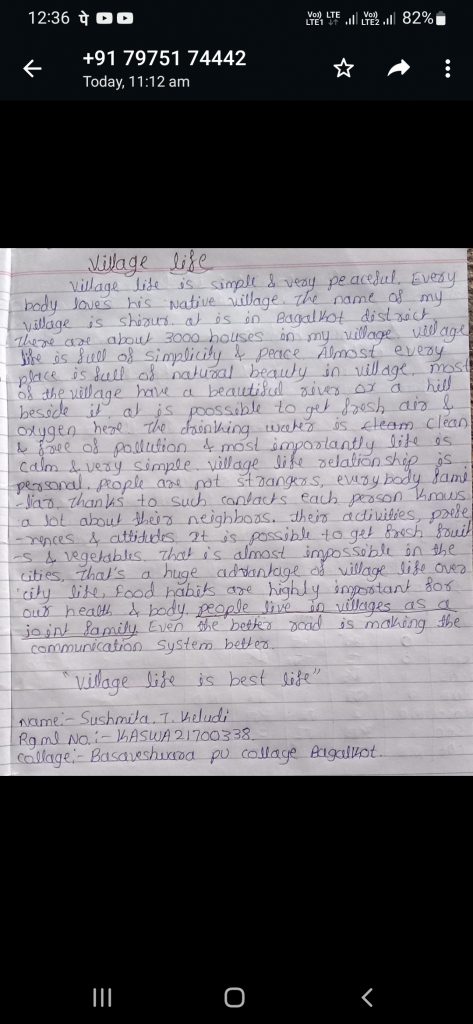 12:36 पे
Vo)) LTE LTE1 Vo)) LTE2 82%
+91 79751 74442
Today, 11:12 am
Village life
Village life is simple & very peaceful. Every
body loves his native village. The name of my
village is shirur. at is in Bagalkot district
There are about 3000 houses in my village. village
life is full of simplicity & peace Almost every
place is full of natural beauty in village, most
of the village have a beautiful river or a hill
beside it, at is poossible to get fresh air &
oxygen here. The drinking water is cleam clean
& free of pollution & most importantly life is
calm & very simple. village life relation ship is
personal. people are not strangers, every body fami
-liar, thanks to such contacts each person knows
a lot about their neighbors. their activities, prefe
-rences & attitudes It is possible to get fresh fruit
-s & vegetables. that is almost impossible in the
cities, That's a huge advantage of village life over
city life, Food habits are highly important for
our health & body. people live in villages as a
joint family Even the better road is making the
communication system better.
"Village life is best life"
Name:- Sushmita. T. Keludi
Rg.ml No.:- KASWA21700338.
collage:- Basaveshwara pu collage Bagalkot.